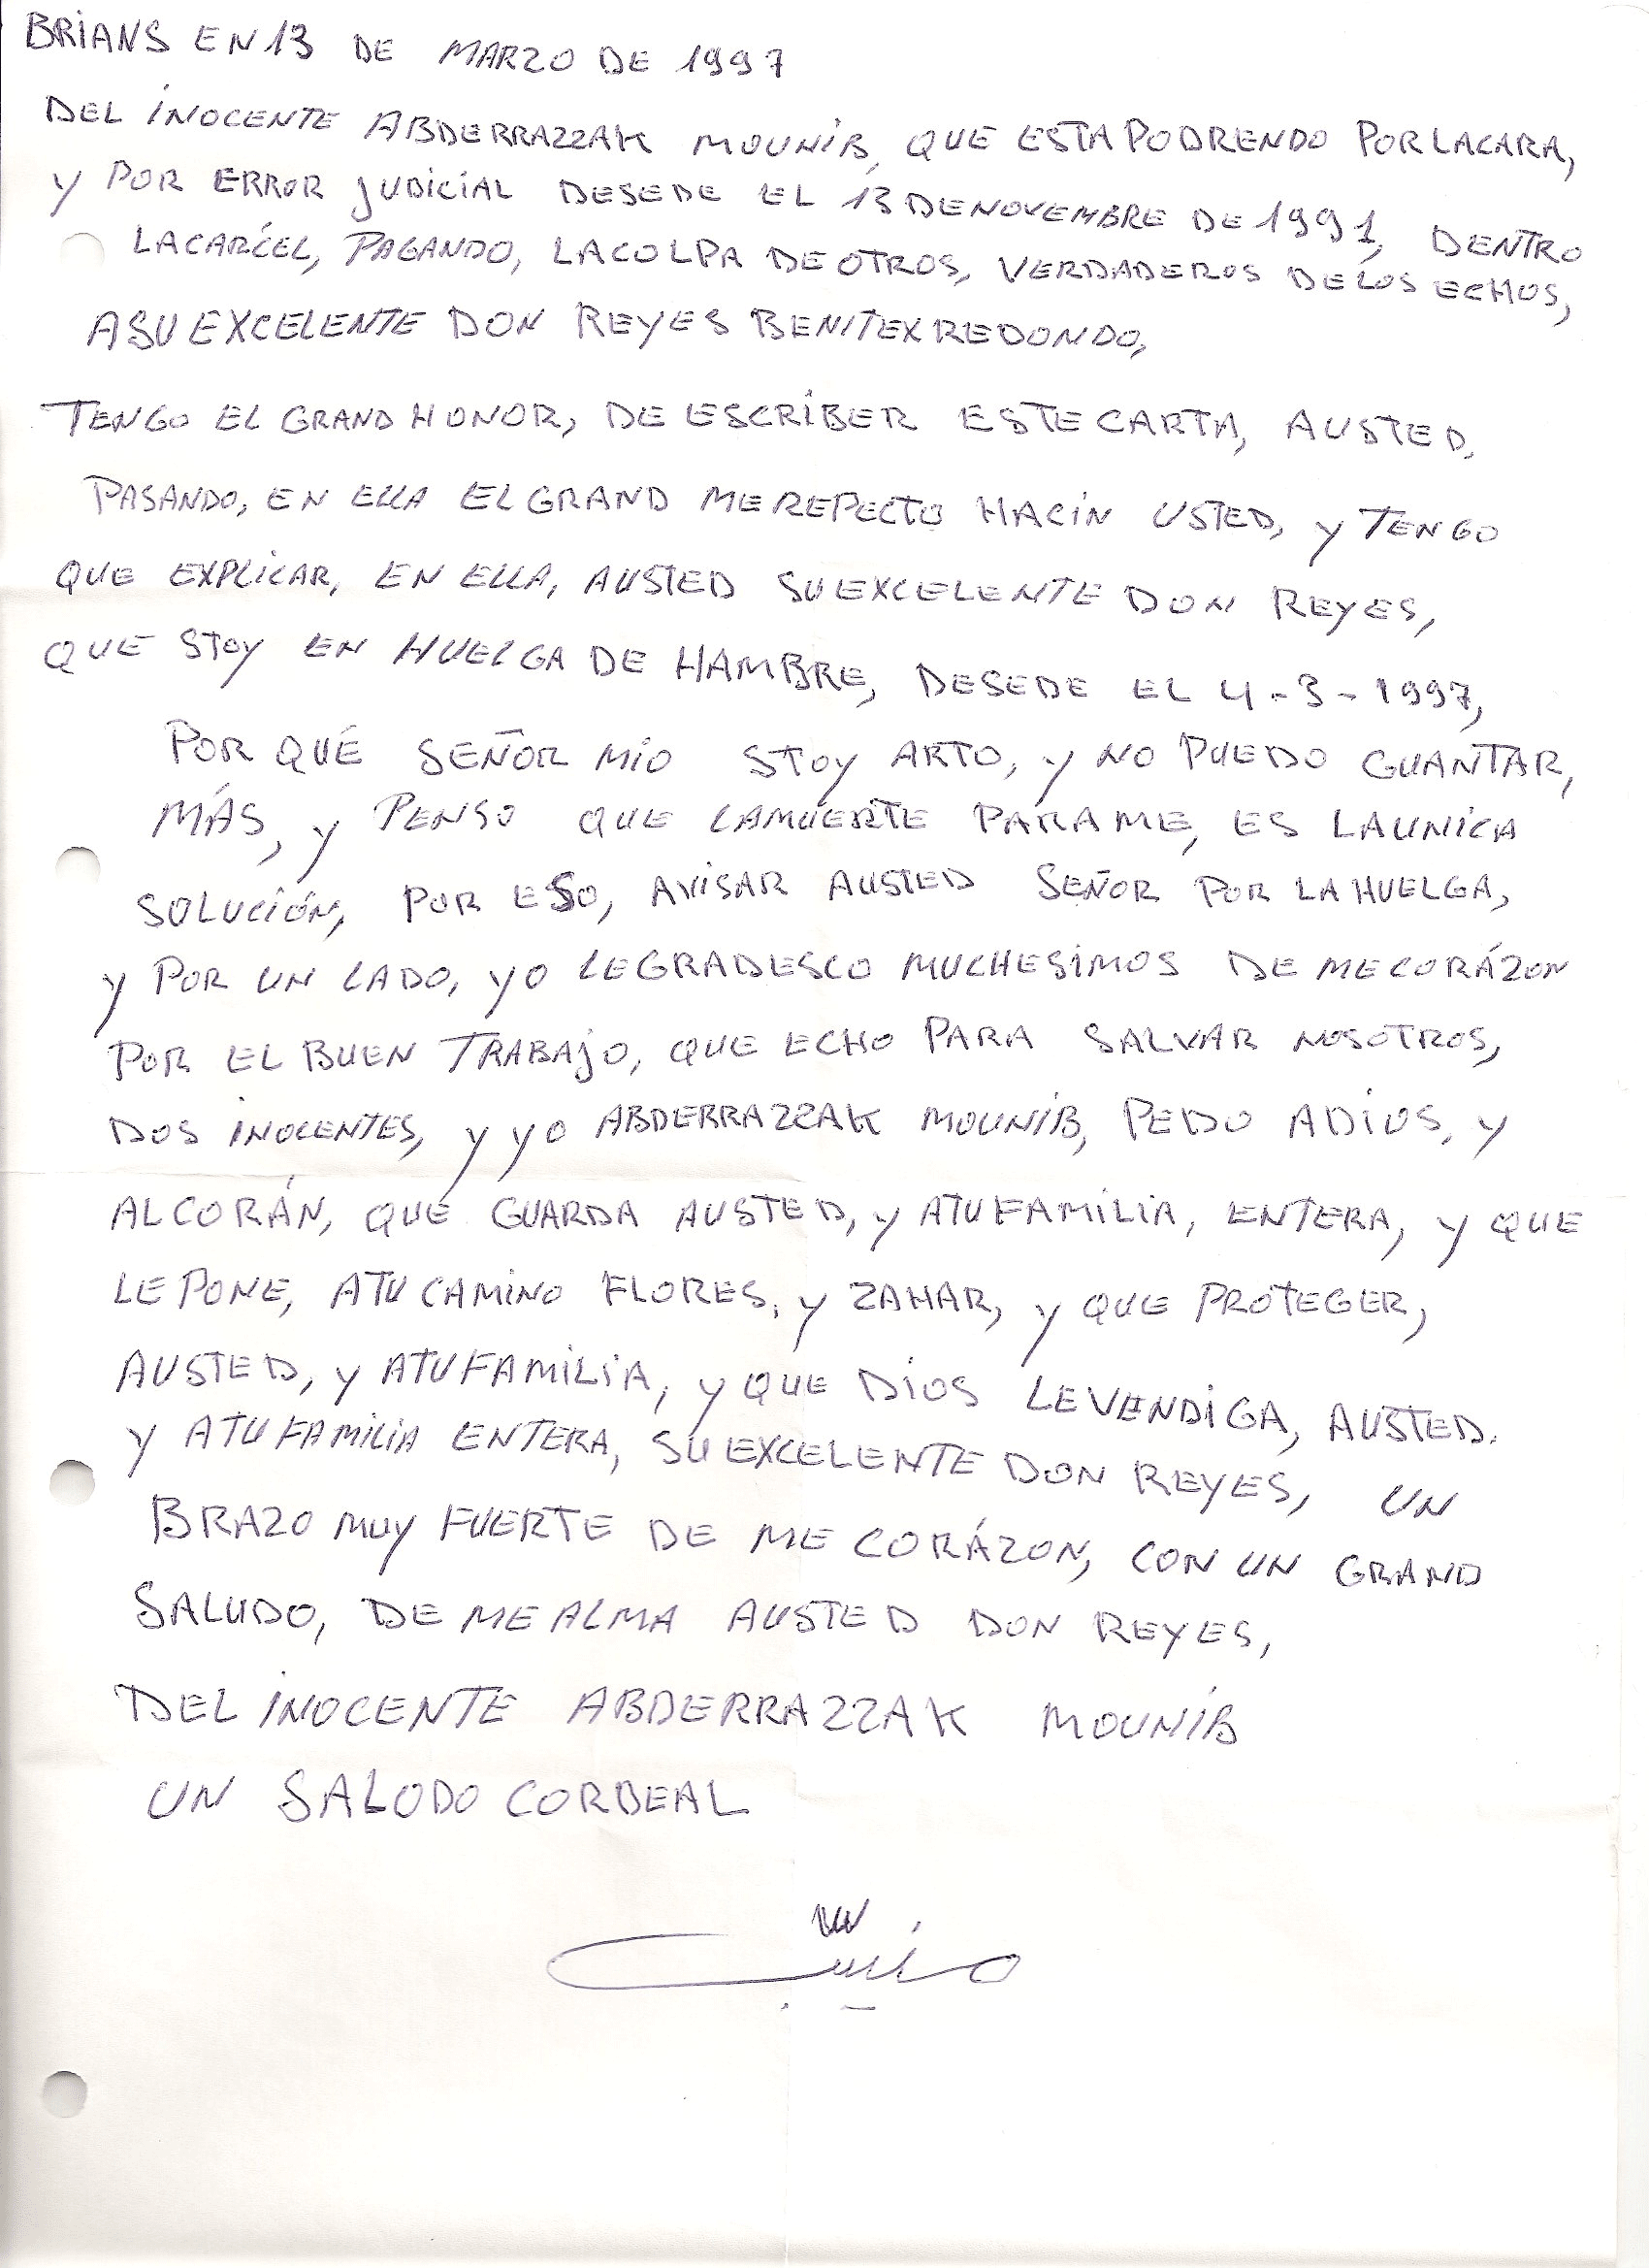 BRIANS EN 13 DE MARZO DE 1997
DEL INOCENTE ABDERRAZZAK MOUNIB, QUE ESTA PODRENDO POR LACARA,
Y POR ERROR JUDICIAL DESEDE EL 13 DE NOVEMBRE DE 1991, DENTRO
LACARĆEL, PAGANDO, LACOLPA DE OTROS, VERDADEROS DE LOS ECHOS,
ASU EXCELENTE DON REYES BENITEX REDONDO,
TENGO EL GRAND HONOR, DE ESCRIBER ESTE CARTA, AUSTED,
PASANDO, EN ELLA EL GRAND ME REPECTO HACIN USTED, Y TENGO
QUE EXPLICAR, EN ELLA, AUSTED SU EXCELENTE DON REYES,
QUE STOY EN HUELGA DE HAMBRE, DESEDE EL 4-3-1997,
POR QUÉ SEÑOR MIO STOY ARTO, Y NO PUEDO GUANTAR,
MÁS, Y PENSO QUE LAMUERTE PARAME, ES LAUNICA
SOLUCIÓN, POR ESO, AVISAR AUSTED SEÑOR POR LA HUELGA,
Y POR UN LADO, YO LEGRADESCO MUCHESIMOS DE ME CORÁZON
POR EL BUEN TRABAJO, QUE ECHO PARA SALVAR NOSOTROS,
DOS INOCENTES, Y YO ABDERRAZZAK MOUNIB, PEDO ADIOS, Y
ALCORÁN, QUÉ GUARDA AUSTED, Y ATU FAMILIA, ENTERA, Y QUE
LE PONE, ATU CAMINO FLORES, Y ZAHAR, Y QUE PROTEGER,
AUSTED, Y ATU FAMILIA, Y QUE DIOS LEVENDIGA, AUSTED.
Y ATU FAMILIA ENTERA, SU EXCELENTE DON REYES, UN
BRAZO MUY FUERTE DE ME CORÁZON, CON UN GRAND
SALUDO, DE ME ALMA AUSTED DON REYES,
DEL INOCENTE ABDERRAZZAK MOUNIB
UN SALODO CORDEAL